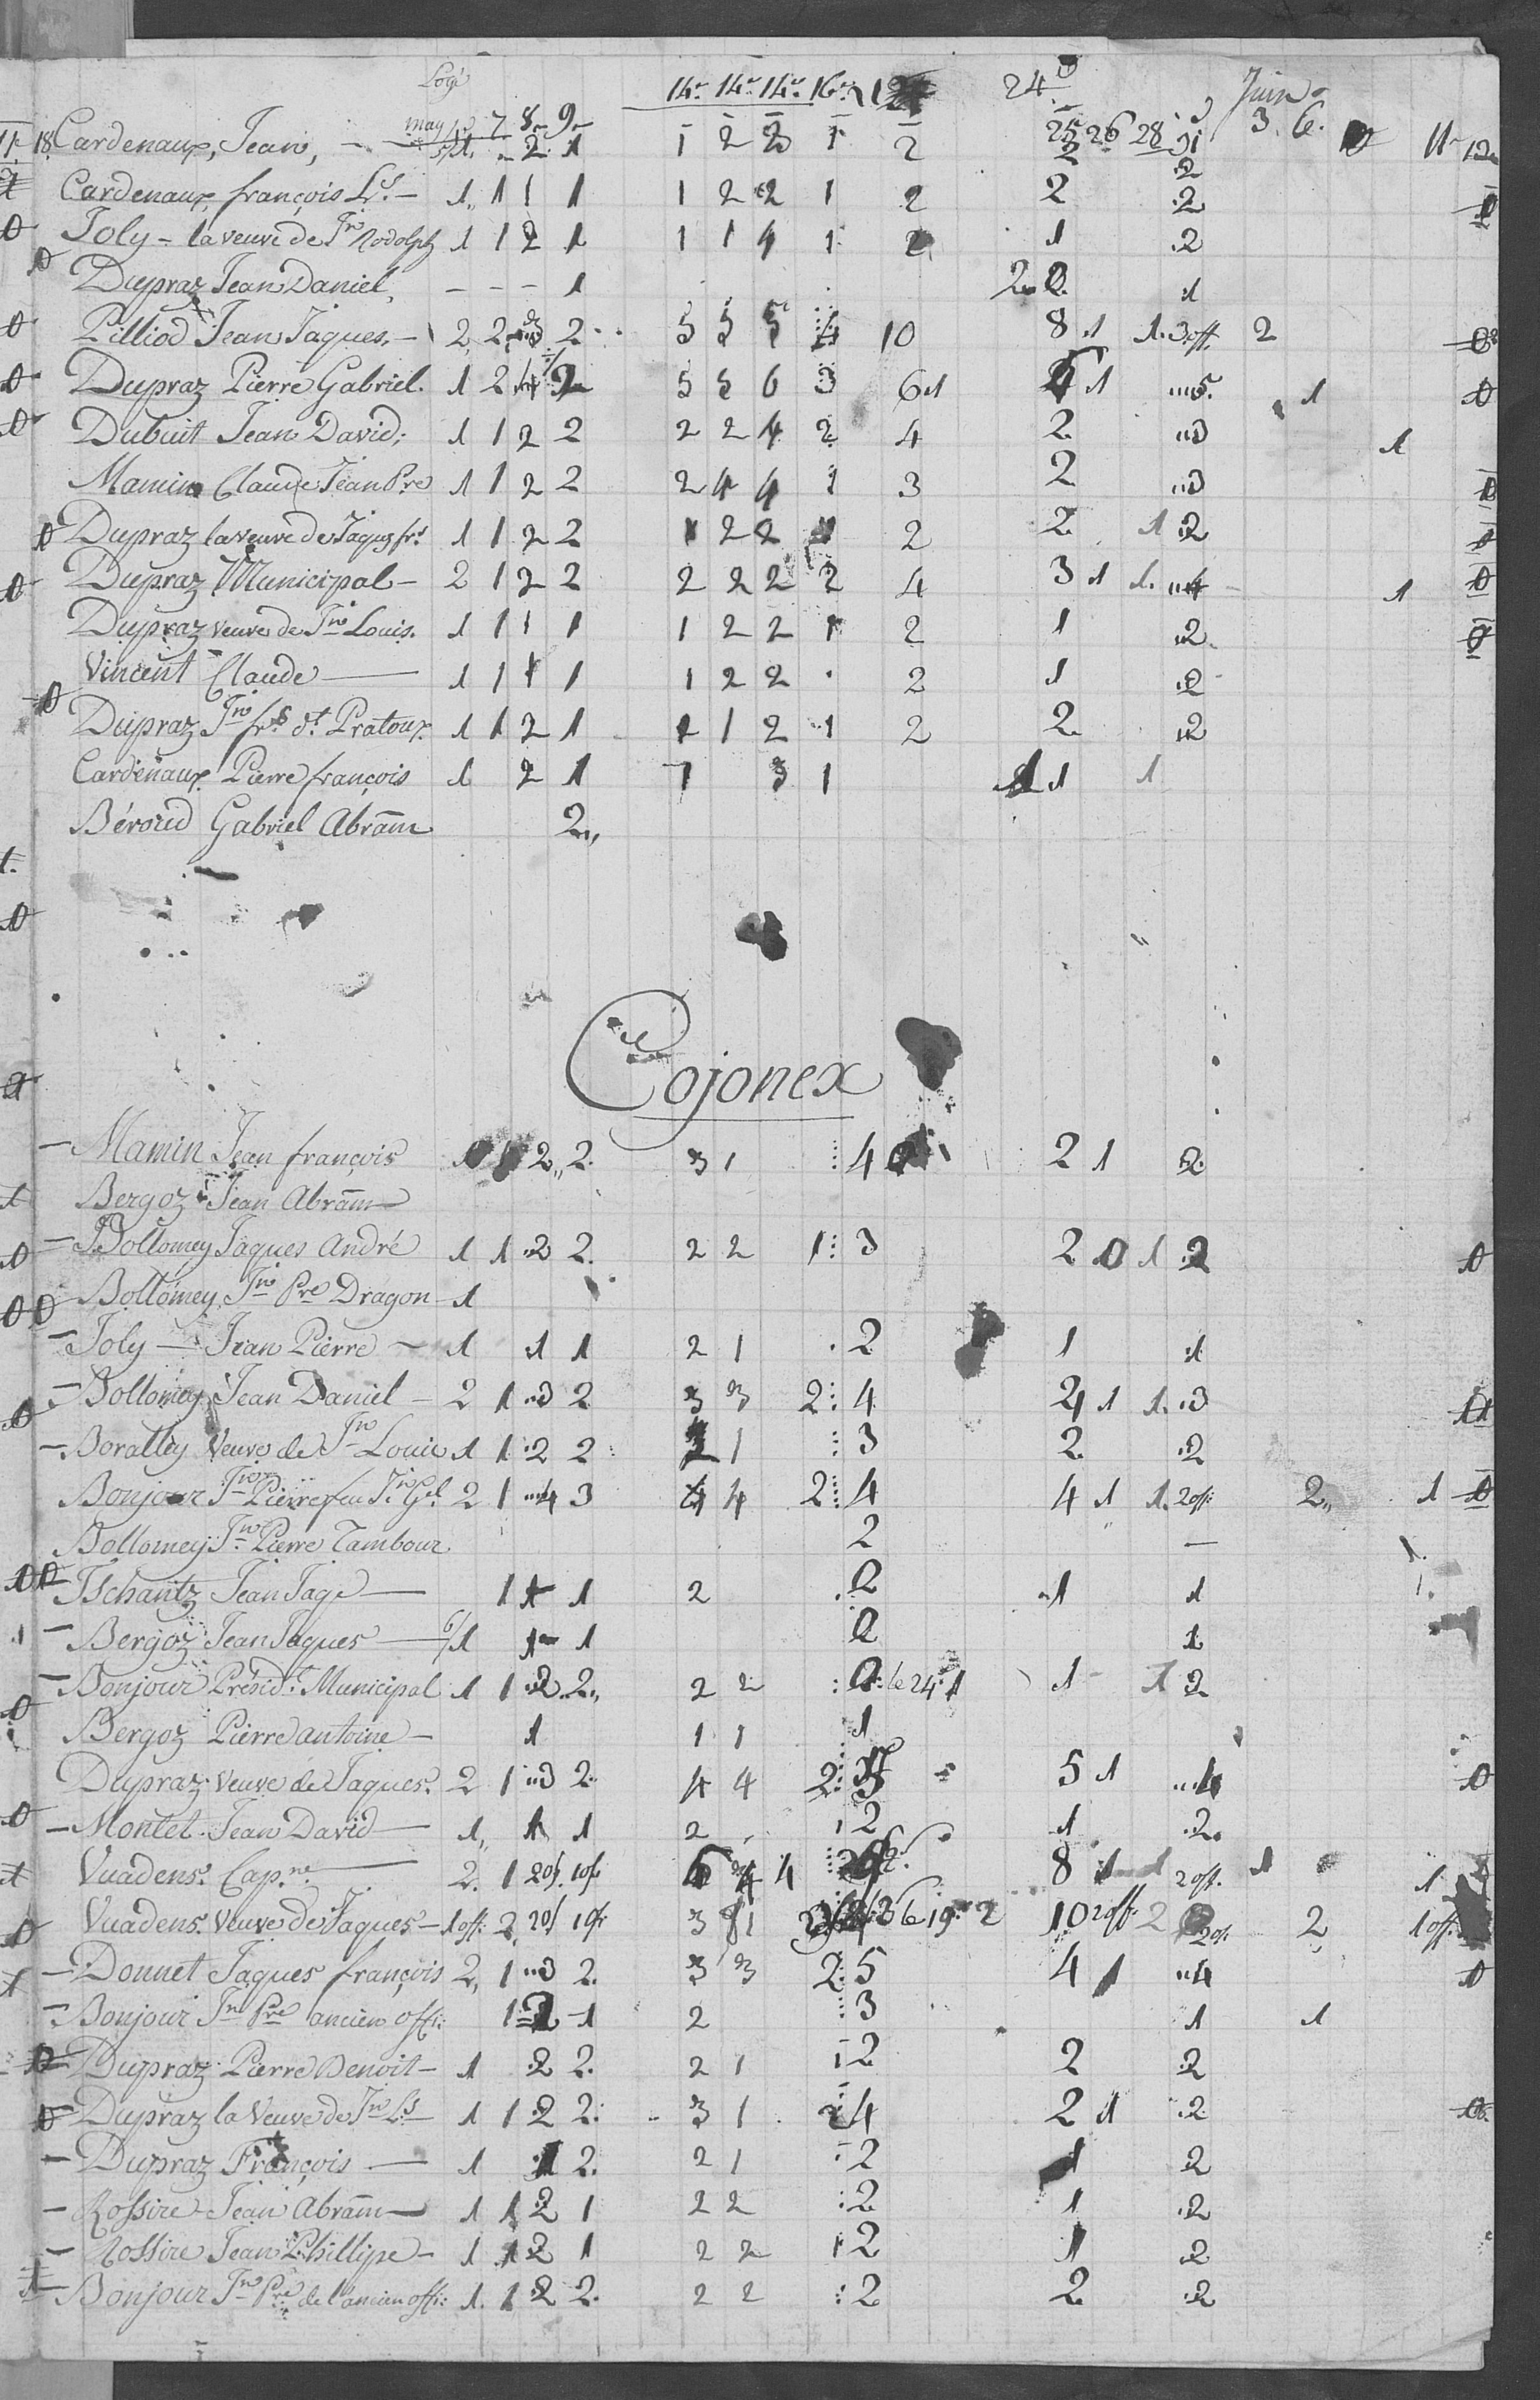 Logé
may 4 7 8 9 14e 14e 14e 16e 24 Juin
25 26 28 31 3. 6. 11e 12
18. Cardenaux, Jean, 2 1 1 2 2 1 2 2 2
Cardenaux, françois Ls. 1 1 1 1 1 2 2 1 2 2 2
Joly - la veuve de Jn Rodolph 1 1 2 1 1 1 4 1 2 1 2
Dupraz Jean Daniel, - - - 1 2 1
Pilliod Jean Jaques. - 2 2 3 2 5 5 5 4 10 8 1 1. 3 off. 2
Dupraz Pierre Gabriel. 1 2 2 5 5 6 3 6 1 1 5. 1
Dubuit Jean David; 1 1 2 2 2 2 4 2 4 2 3 1
Mamin Claude Jean Pre 1 1 2 2 2 4 4 1 3 2 3
Dupraz la veuve de Jaques frs. 1 1 2 2 1 2 2 2 2 1 2
Dupraz Municipal - 2 1 2 2 2 2 2 2 4 3 1 1. 4 1
Dupraz veuve de Jn Louis. 1 1 1 1 1 2 2 1 2 1 2
Vincent Claude 1 1 1 1 1 2 2 . 2 1 2
Dupraz Jn frs dt Pratoux. 1 1 2 1 1 1 2 1 2 2 2
Cardenaux Pierre françois 1 2 1 1 3 1 1 1 1
Béroud Gabriel Abram 2
Cojonex
Mamin Jean françois 1 2 2 3 1 4 2 1 2
Bergoz Jean Abram
Bollomey Jaques André 1 1 2 2 2 2 1 3 2 0 1 2
Bollomey Jn Pre Dragon 1
Joly - Jean Pierre - 1 1 1 2 1 2 1 1
Bollomey Jean Daniel - 2 1 3 2 3 3 2 4 2 1 1 3
Boralley Veuve de Jn Louis 1 1 2 2 2 1 3 2 2
Bonjour Jn Pierre feu Jn Gel 2 1 4 3 4 4 2 4 4 1 1. 2 off. 2 1
Bollomey Jn Pierre Tambour 2 -
Tschantz Jean Jaqe 1 1 1 2 2 1 1
Bergoz Jean Jaques 6/1 1 1 2 1
Bonjour Présidt. Municipal 1 1 2 2 2 2 2 le 24. 1 1 1 2
Bergoz Pierre antoine - 1 1 1 1
Dupraz veuve de Jaques. 2 1 3 2 4 4 2 5 1 4
Montet Jean David 1 1 1 2 2 1 2
Vuadens. Capne. 2. 1 2 off. 1 off. 4 4 8 1 2 off. 1 1
Vuadens. veuve de Jaques - 1 off. 2 2 off. 1 off. 3 1 36 19. 2 10 2 off. 2 2 off. 2 1 off.
Donnet Jaques françois 2 1 3 2. 3 3 2 5 4 1 4
Bonjour Jn Pre ancien offi: 1 2 1 2 3 1 1
Dupraz Pierre Benoit - 1 2 2. 2 1 2 2 2
Dupraz la Veuve de Jn Ls 1 1 2 2. 3 1 4 2 1 2
Dupraz François 1 1 2. 2 1 2 1 2
Rossire Jean Abram 1 1 2 1 2 2 2 1 2
Rossire Jean Phillipe - 1 1 2 1 2 2 2 1 2
Bonjour Jn Pre de l'ancien offi: 1. 1 2 2. 2 2 2 2 2